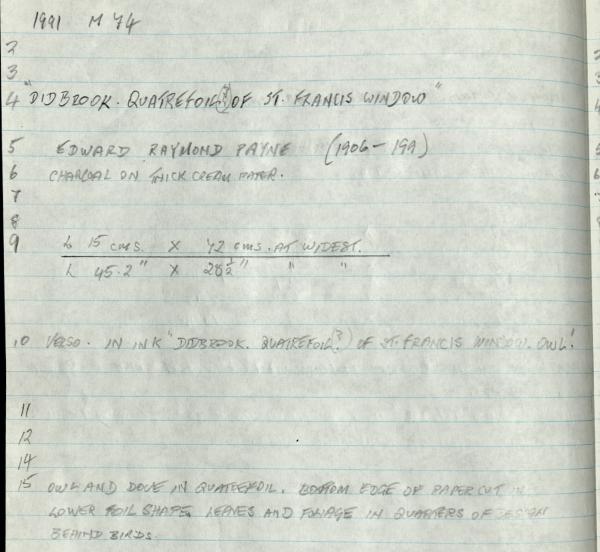 1991 M 74
2
3
4 "DIDBROOK. QUATREFOIL(?) OF ST. FRANCIS WINDOW"
5 EDWARD RAYMOND PAYNE (1906 - 199)
6 CHARCOAL ON THICK CREAM PAPER.
7
8
9 L 15 cms. X 72 cms. AT WIDEST.
L 45.2" X 28½" " "
10 VERSO. IN INK "DIDBROOK. QUATREFOIL(?) OF ST. FRANCIS WINDOW. OWL."
11
12
14
15 OWL AND DOVE IN QUATREFOIL. BOTTOM EDGE OF PAPER CUT IN
LOWER FOIL SHAPE. LEAVES AND FOLIAGE IN QUARTERS OF DESIGN
BEHIND BIRDS.